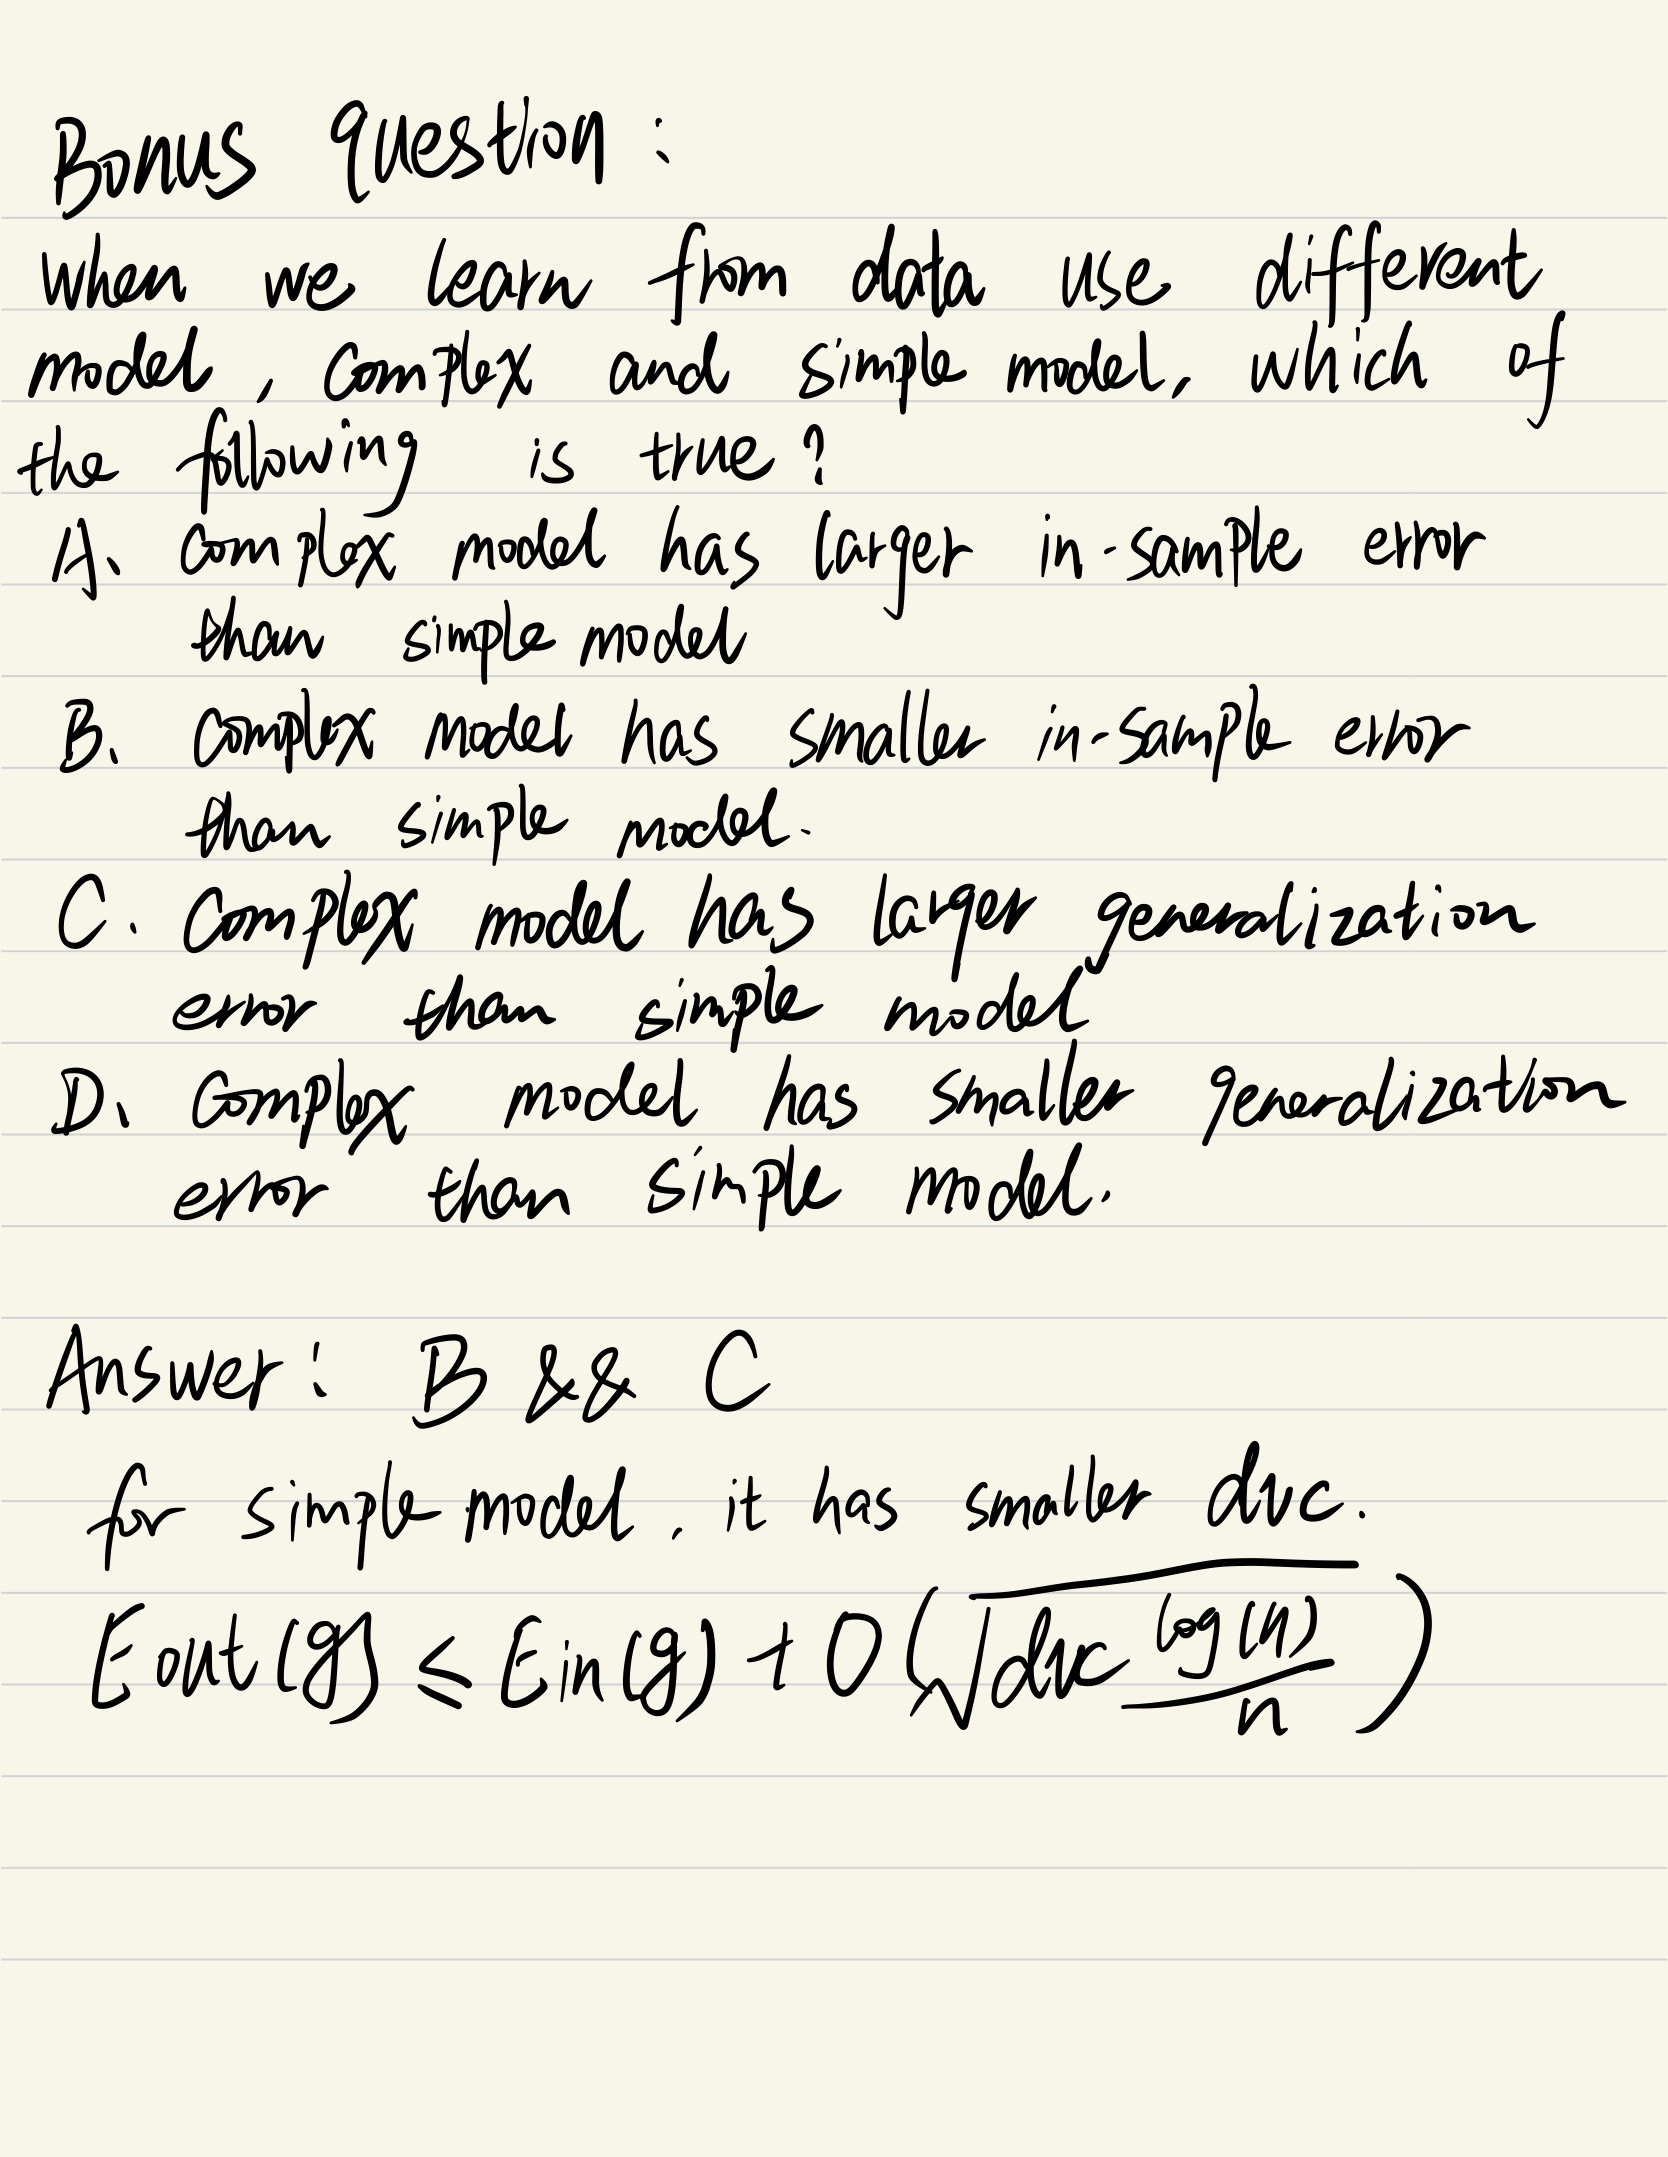 Bonus question:
when we learn from data use different
model, complex and simple model, which of
the following is true?
A. complex model has larger in-sample error
than simple model
B. complex model has smaller in-sample error
than simple model.
C. complex model has larger generalization
error than simple model
D. complex model has smaller generalization
error than simple model.
Answer: B && C
for simple model. it has smaller dvc.
Eout(g) ≤ Ein(g) + O(√(dvc log(n)/n))